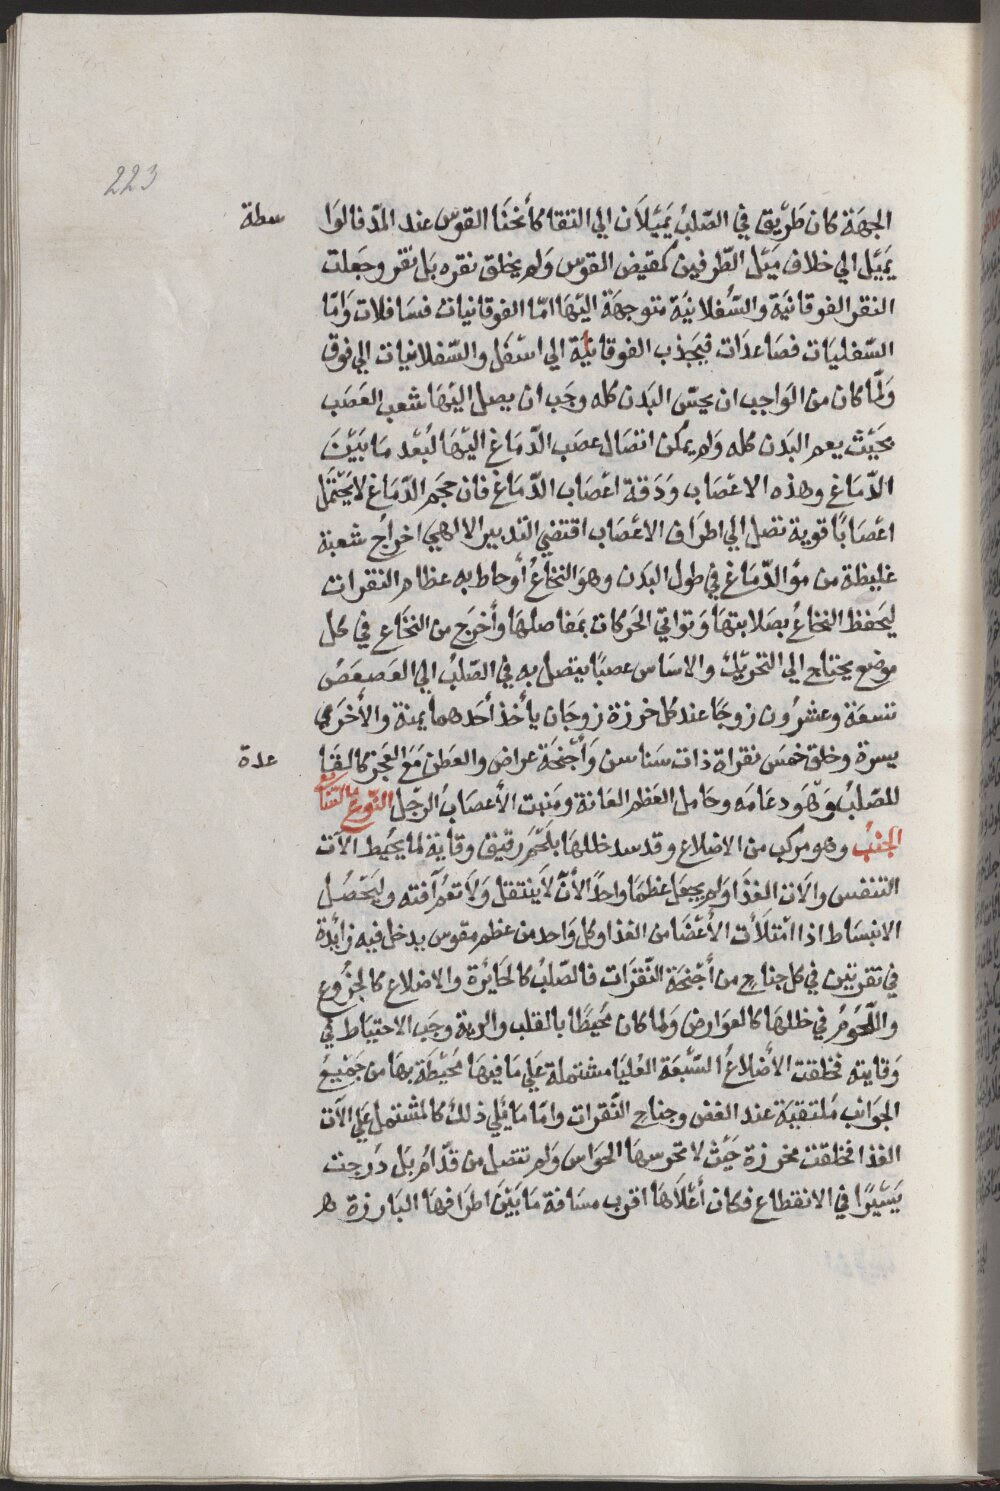 223
الجهَة كان طَرِيق في الصّلبُ يَميَّلاَن الي التقا كأنحنَا القوس عند المدّ فالوَا سطة
يَميَّل الي خلاف مَيَّل الطّرفين كمقيض القوس وَلم يخلق نقره بَل نقر وجَعلت
النقر الفوقانيَة والسُّفلانيَة متوجهَة اليّهَا امّا الفوقانيات فسَافلات وَامّا
السّفليَات فصَاعدَات فيَجذب الفوقانيّة الي اسْفَل والسّفلانيات الي فوق
وَلمّا كان من الوَاجب ان يحسّ البَدن كله وجَب ان يصل اليَهَا شعب العَصَب
بحَيْث يعم البَدن كله وَلم يمكن اتصَال عصَب الدّمَاغ اليّهَا لبُعْد مَا بَيْنَ
الدّمَاغ وهذه الاعْصَاب وَدَقة اعْصَاب الدّمَاغ فان حجَم الدّمَاغ لا يَحْتَمَل
اعْصَابًا قوية تصَل الي اطرَاف الاعْصَاب اقتضي التدبير الالهي اخرَاج شعبَة
غليظة من مؤ الدّمَاغ في طول البَدن وهوَ النخاعُ أوحاط به عظام النقرات
ليَحفظ النخاعُ بصَلابتهَا وَتواتي الحَركات بمَفاصلهَا وأخرَج من النخَاع في كل
موضع يحتاج الي التحريّك والاسَاس عصبًا يتصل به في الصّلبُ الي العَصعَصُ
تسعَة وعشرُون زوجًا عند كل خرزة زوجَان يأخذ أحَدهما يمنة والأخرَي
يسرة وخلق خمسَ نقراة ذات سَناسن وَأجْنحَة عراض والعَطن مَعَ العَجز كالقَا عدة
للصّلبُ وَهْوَ دعَامَه وحَامل العَظم العَانة ومَنبت الأعصَابُ الرجّل النّوع التَّاسع
الجنبُ وهو مركب من الاضلاع وقد سد خللهَا بلَحْم رَقيق وقاية لما يحيُط الآت
التنفس والآت الغذَا وَلم يجعَل عظمًا واحدًا لأنّ لاَ ينتقل وَلاَ تعُم آفته وليَحْصُل
الانبسَاط اذا امْتلأت الأعْضَا من الغذا وكل وَاحد من عظم مقوس يدخل فيه زائدة
في نقرتين في كل جناح من أجْنحَة النّقرَات فالصّلبُ كالحَائزة والاضلاع كالجزُوع
واللّحُوم في خللهَا كالعوَارض وَلما كان محَيطًا بالقلب والرية وجَب الاحتيَاط في
وَقايته فخلقت الأضْلاعُ السَّبْعَة العُليَا مشتملة عَلي مَا فيهَا مُحيْطَة بهَا من جَمْيعُ
الجوَانب مَلتقيَة عند القص وجناح النقرات وامّا مَا يَّلي ذلكَ كالمشتمل عَلي الآت
الغذا فخلقت مخرزة حَيْث لا تحوسهَا الحوَاس وَلم تتصل من قدّام بَل دَرجت
يَسَيرًا في الانقطاع فكان أعْلاَهَا اقرب مسَافة مَا بَيْنَ اطرَافهَا البَارزة